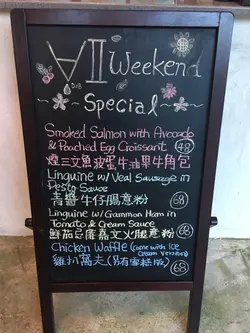 All Weekend
Special
Smoked Salmon with Avocado
& Poached Egg Croissant 48
煙三文魚波蛋牛油果牛角包
Linguine w/ Veal Sausage in
Pesto Sauce
青醬牛仔腸意粉 68
Linguine w/ Gammon Ham in
Tomato & Cream Sauce
鮮茄忌廉嘉文火腿意粉 68
Chicken Waffle (come with Ice
Cream Version)
雞扒窩夫(另有雪糕版) 68